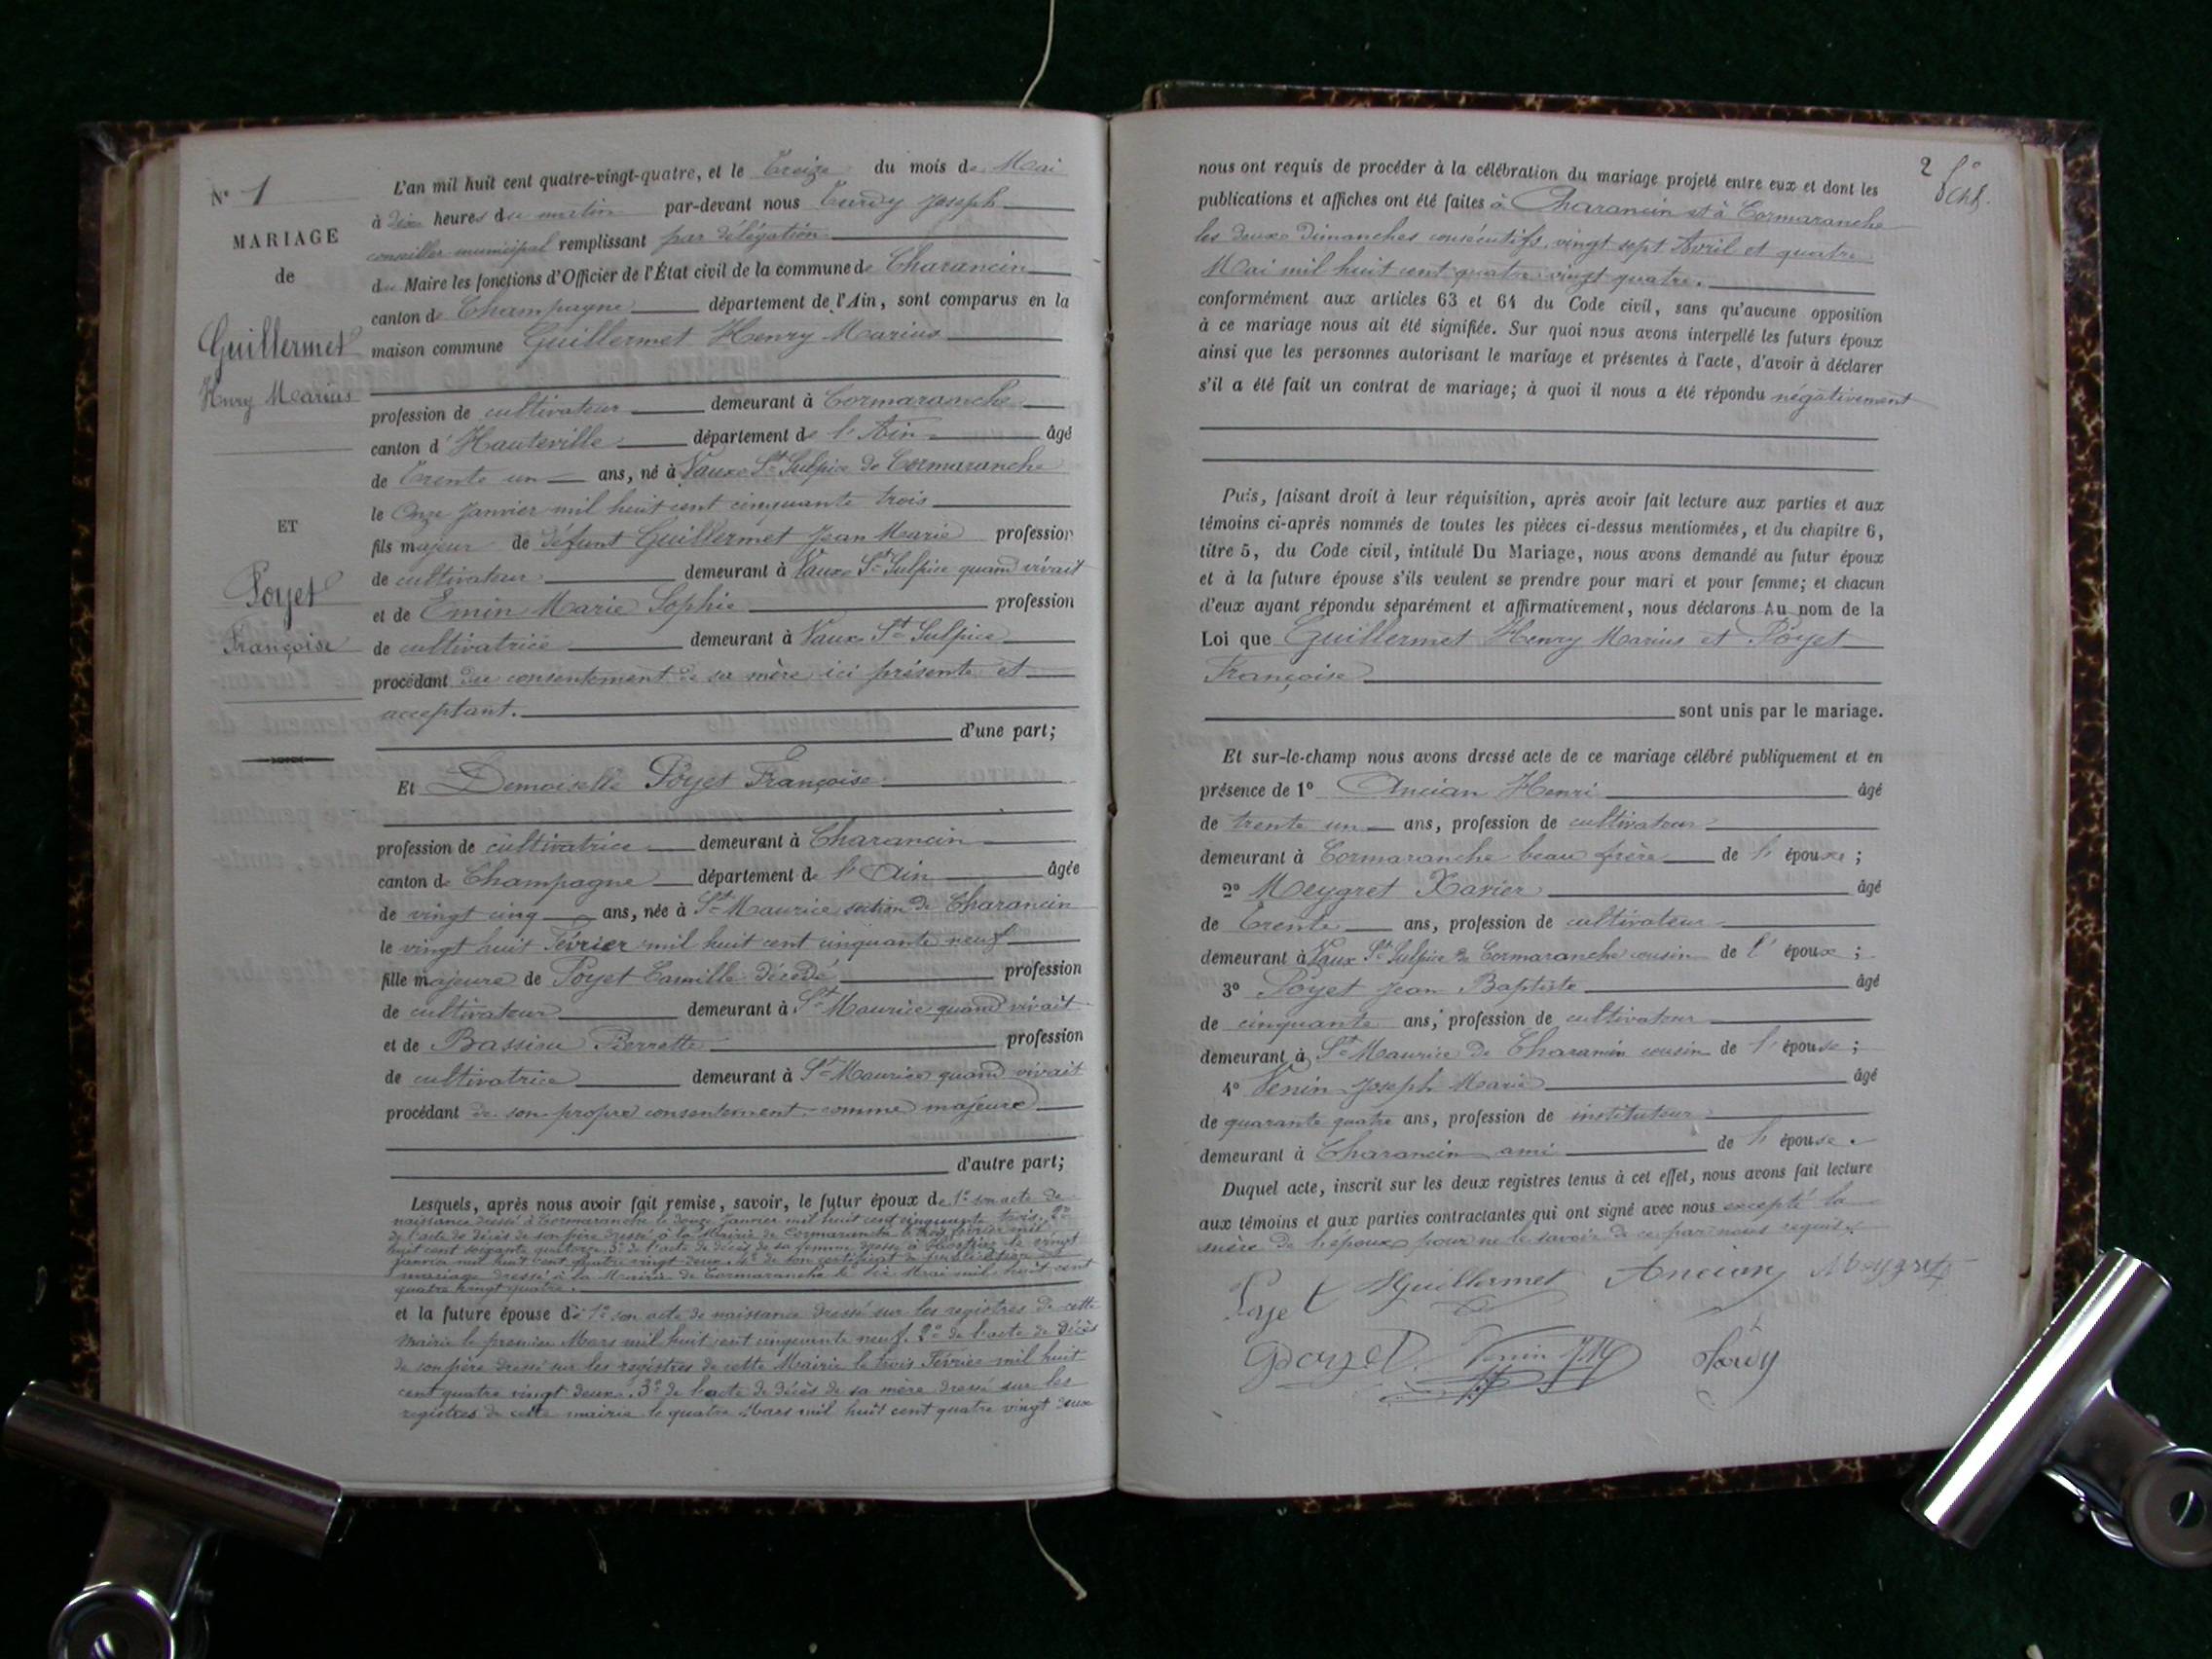 N° 1
MARIAGE
de
Guillermet
Henry Marius
ET
Poyet
Françoise
L'an mil huit cent quatre-vingt-quatre, et le Treize du mois de Mai
à dix heures du matin par-devant nous Joseph
conseiller municipal remplissant par délégation
du Maire les fonctions d'Officier de l'État civil de la commune de Charancin
canton de Champagne département de l'Ain, sont comparus en la
maison commune Guillermet Henry Marius
profession de cultivateur demeurant à Cormaranche
canton d'Hauteville département de l'Ain âgé
de Trente un ans, né à Vaux St Sulpice de Cormaranche
le Onze Janvier mil huit cent cinquante trois
fils majeur de défunt Guillermet Jean Marie profession
de cultivateur demeurant à Vaux St Sulpice quand vivait
et de Emin Marie Sophie profession
de cultivatrice demeurant à Vaux St Sulpice
procédant du consentement de sa mère ici présente et
acceptant.
d'une part;
Et Demoiselle Poyet Françoise
profession de cultivatrice demeurant à Charancin
canton de Champagne département de l'Ain âgée
de vingt cinq ans, née à St Maurice section de Charancin
le vingt huit Février mil huit cent cinquante neuf
fille majeure de Poyet Camille décédé profession
de cultivateur demeurant à St Maurice quand vivait
et de Perrette profession
de cultivatrice demeurant à St Maurice quand vivait
procédant de son propre consentement comme majeure
d'autre part;
Lesquels, après nous avoir fait remise, savoir, le futur époux de 1° son acte de
naissance dressé à Cormaranche le douze Janvier mil huit cent cinquante trois. 2°
de l'acte de décès de son père dressé à la Mairie de Cormaranche le Février mil
huit cent soixante quatorze. 3° de l'acte de décès de sa femme dressé à le vingt
Janvier mil huit cent quatre vingt deux. 4° de son certificat de publication de
mariage dressé à la Mairie de Cormaranche le dix Mai mil huit cent
quatre vingt quatre.
et la future épouse de 1° son acte de naissance dressé sur les registres de cette
mairie le premier Mars mil huit cent cinquante neuf. 2° de l'acte de décès
de son père dressé sur les registres de cette Mairie le trois Février mil huit
cent quatre vingt deux. 3° de l'acte de décès de sa mère dressé sur les
registres de cette mairie le quatre Mars mil huit cent quatre vingt deux
2
nous ont requis de procéder à la célébration du mariage projeté entre eux et dont les
publications et affiches ont été faites à Charancin et à Cormaranche
les deux Dimanches consécutifs, vingt sept Avril et quatre
Mai mil huit cent quatre vingt quatre.
conformément aux articles 63 et 64 du Code civil, sans qu'aucune opposition
à ce mariage nous ait été signifiée. Sur quoi nous avons interpellé les futurs époux
ainsi que les personnes autorisant le mariage et présentes à l'acte, d'avoir à déclarer
s'il a été fait un contrat de mariage; à quoi il nous a été répondu négativement
Puis, faisant droit à leur réquisition, après avoir fait lecture aux parties et aux
témoins ci-après nommés de toutes les pièces ci-dessus mentionnées, et du chapitre 6,
titre 5, du Code civil, intitulé Du Mariage, nous avons demandé au futur époux
et à la future épouse s'ils veulent se prendre pour mari et pour femme; et chacun
d'eux ayant répondu séparément et affirmativement, nous déclarons Au nom de la
Loi que Guillermet Henry Marius et Poyet
Françoise
sont unis par le mariage.
Et sur-le-champ nous avons dressé acte de ce mariage célébré publiquement et en
présence de 1° Ancian Henri âgé
de trente un ans, profession de cultivateur
demeurant à Cormaranche beau frère de l'époux;
2° Meygret Xavier âgé
de Trente ans, profession de cultivateur
demeurant à Vaux St Sulpice de Cormaranche cousin de l'époux;
3° Poyet Jean Baptiste âgé
de cinquante ans, profession de cultivateur
demeurant à St Maurice de Charancin cousin de l'épouse;
4° Venin Joseph Marie âgé
de quarante quatre ans, profession de instituteur
demeurant à Charancin ami de l'épouse.
Duquel acte, inscrit sur les deux registres tenus à cet effet, nous avons fait lecture
aux témoins et aux parties contractantes qui ont signé avec nous excepté la
mère de l'époux pour ne le savoir de ce par nous requise.
Poyet HGuillermet Ancian Meygret
Poyet Venin JM